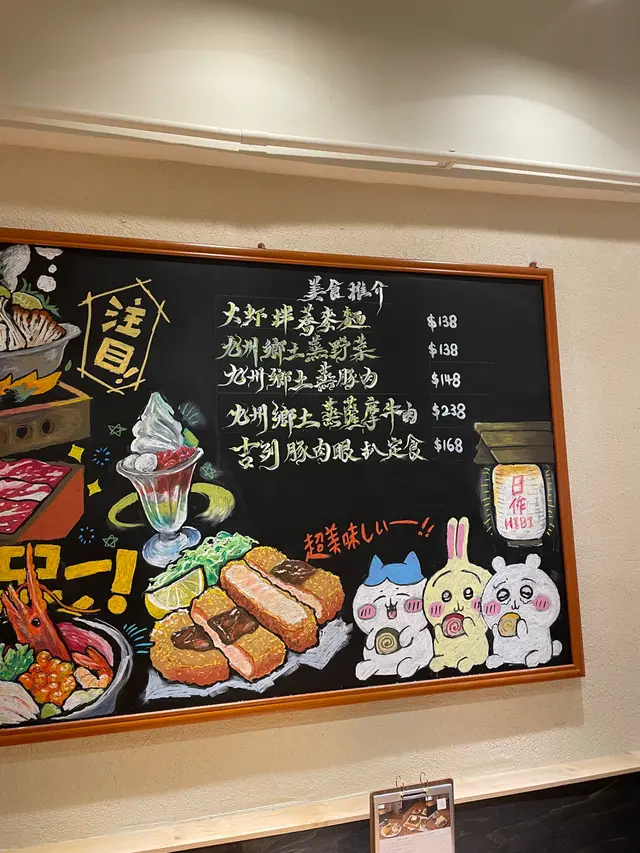 美食推介
大虾拌蕎麥麵 $138
九州鄉土蒸野菜 $138
九州鄉土蒸豚肉 $148
九州鄉土蒸薩摩牛肉 $238
吉列豚肉眼扒定食 $168
注目!
超美味しぃー!!
日作
HIBI